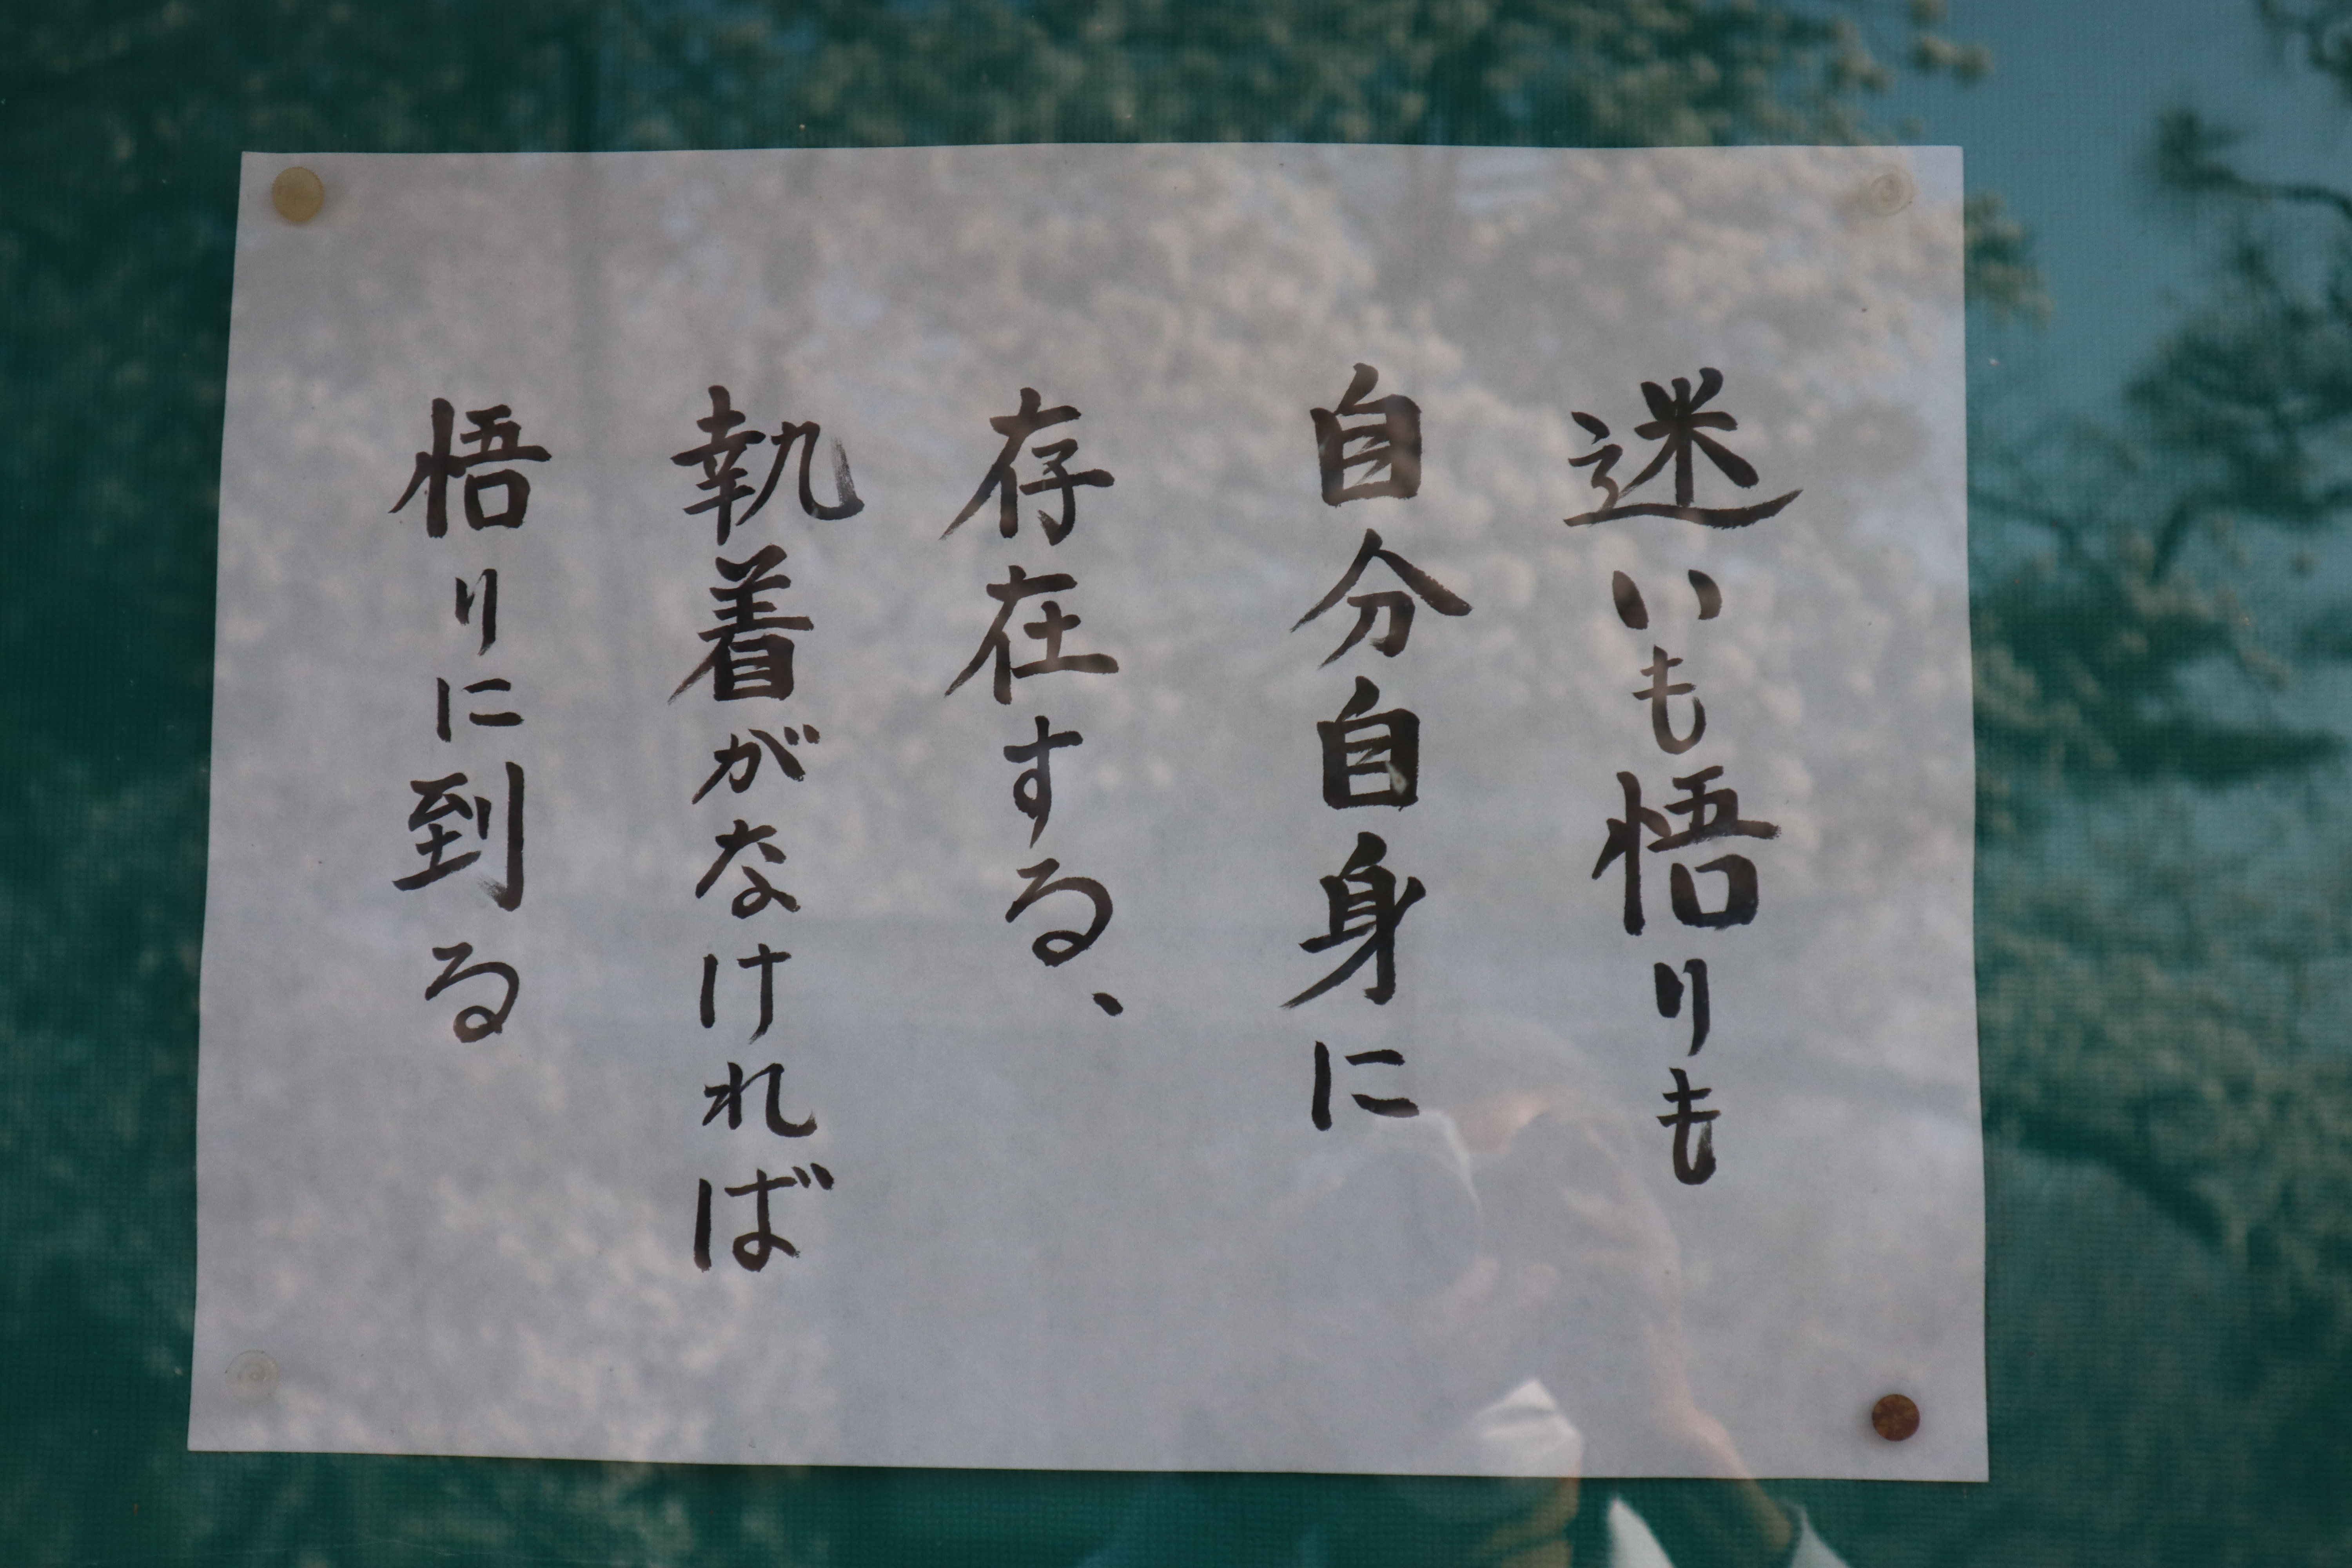 迷いも悟りも
自分自身に
存在する、
執着がなければ
悟りに到る